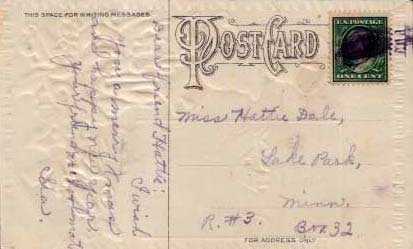 THIS SPACE FOR WRITING MESSAGES
POST CARD
U.S. POSTAGE
ONE CENT
Dear friend Hattie
I wish
you a merry Xmas
and happy new year.
your friend
Miss Hattie Dale,
Lake Park,
Minn.
R. #3. Box 32
FOR ADDRESS ONLY